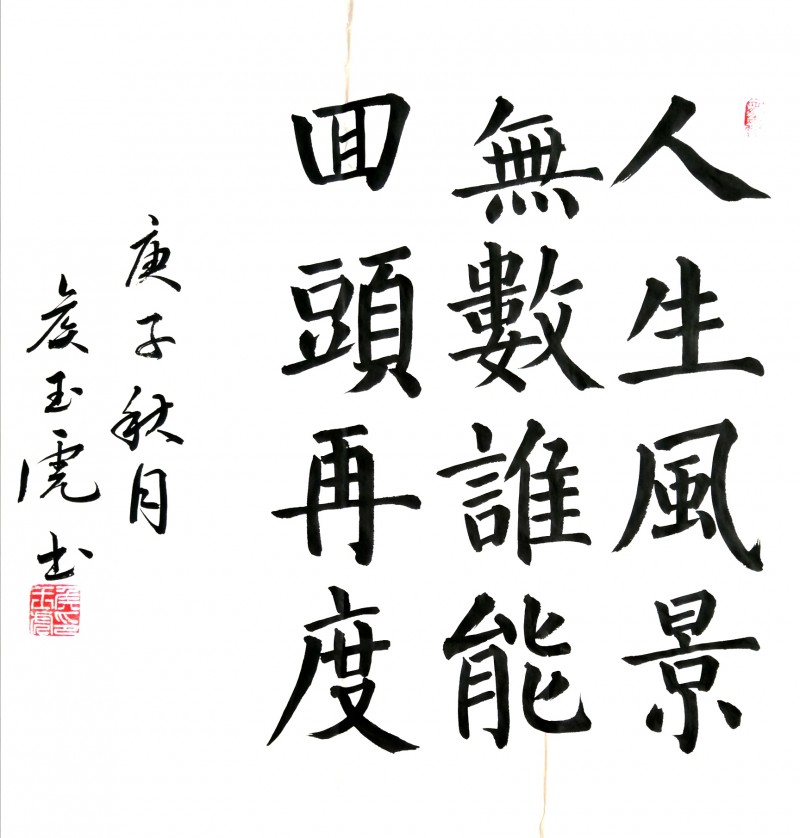 人生風景
無數誰能
回頭再度
庚子秋月
侯玉虎书